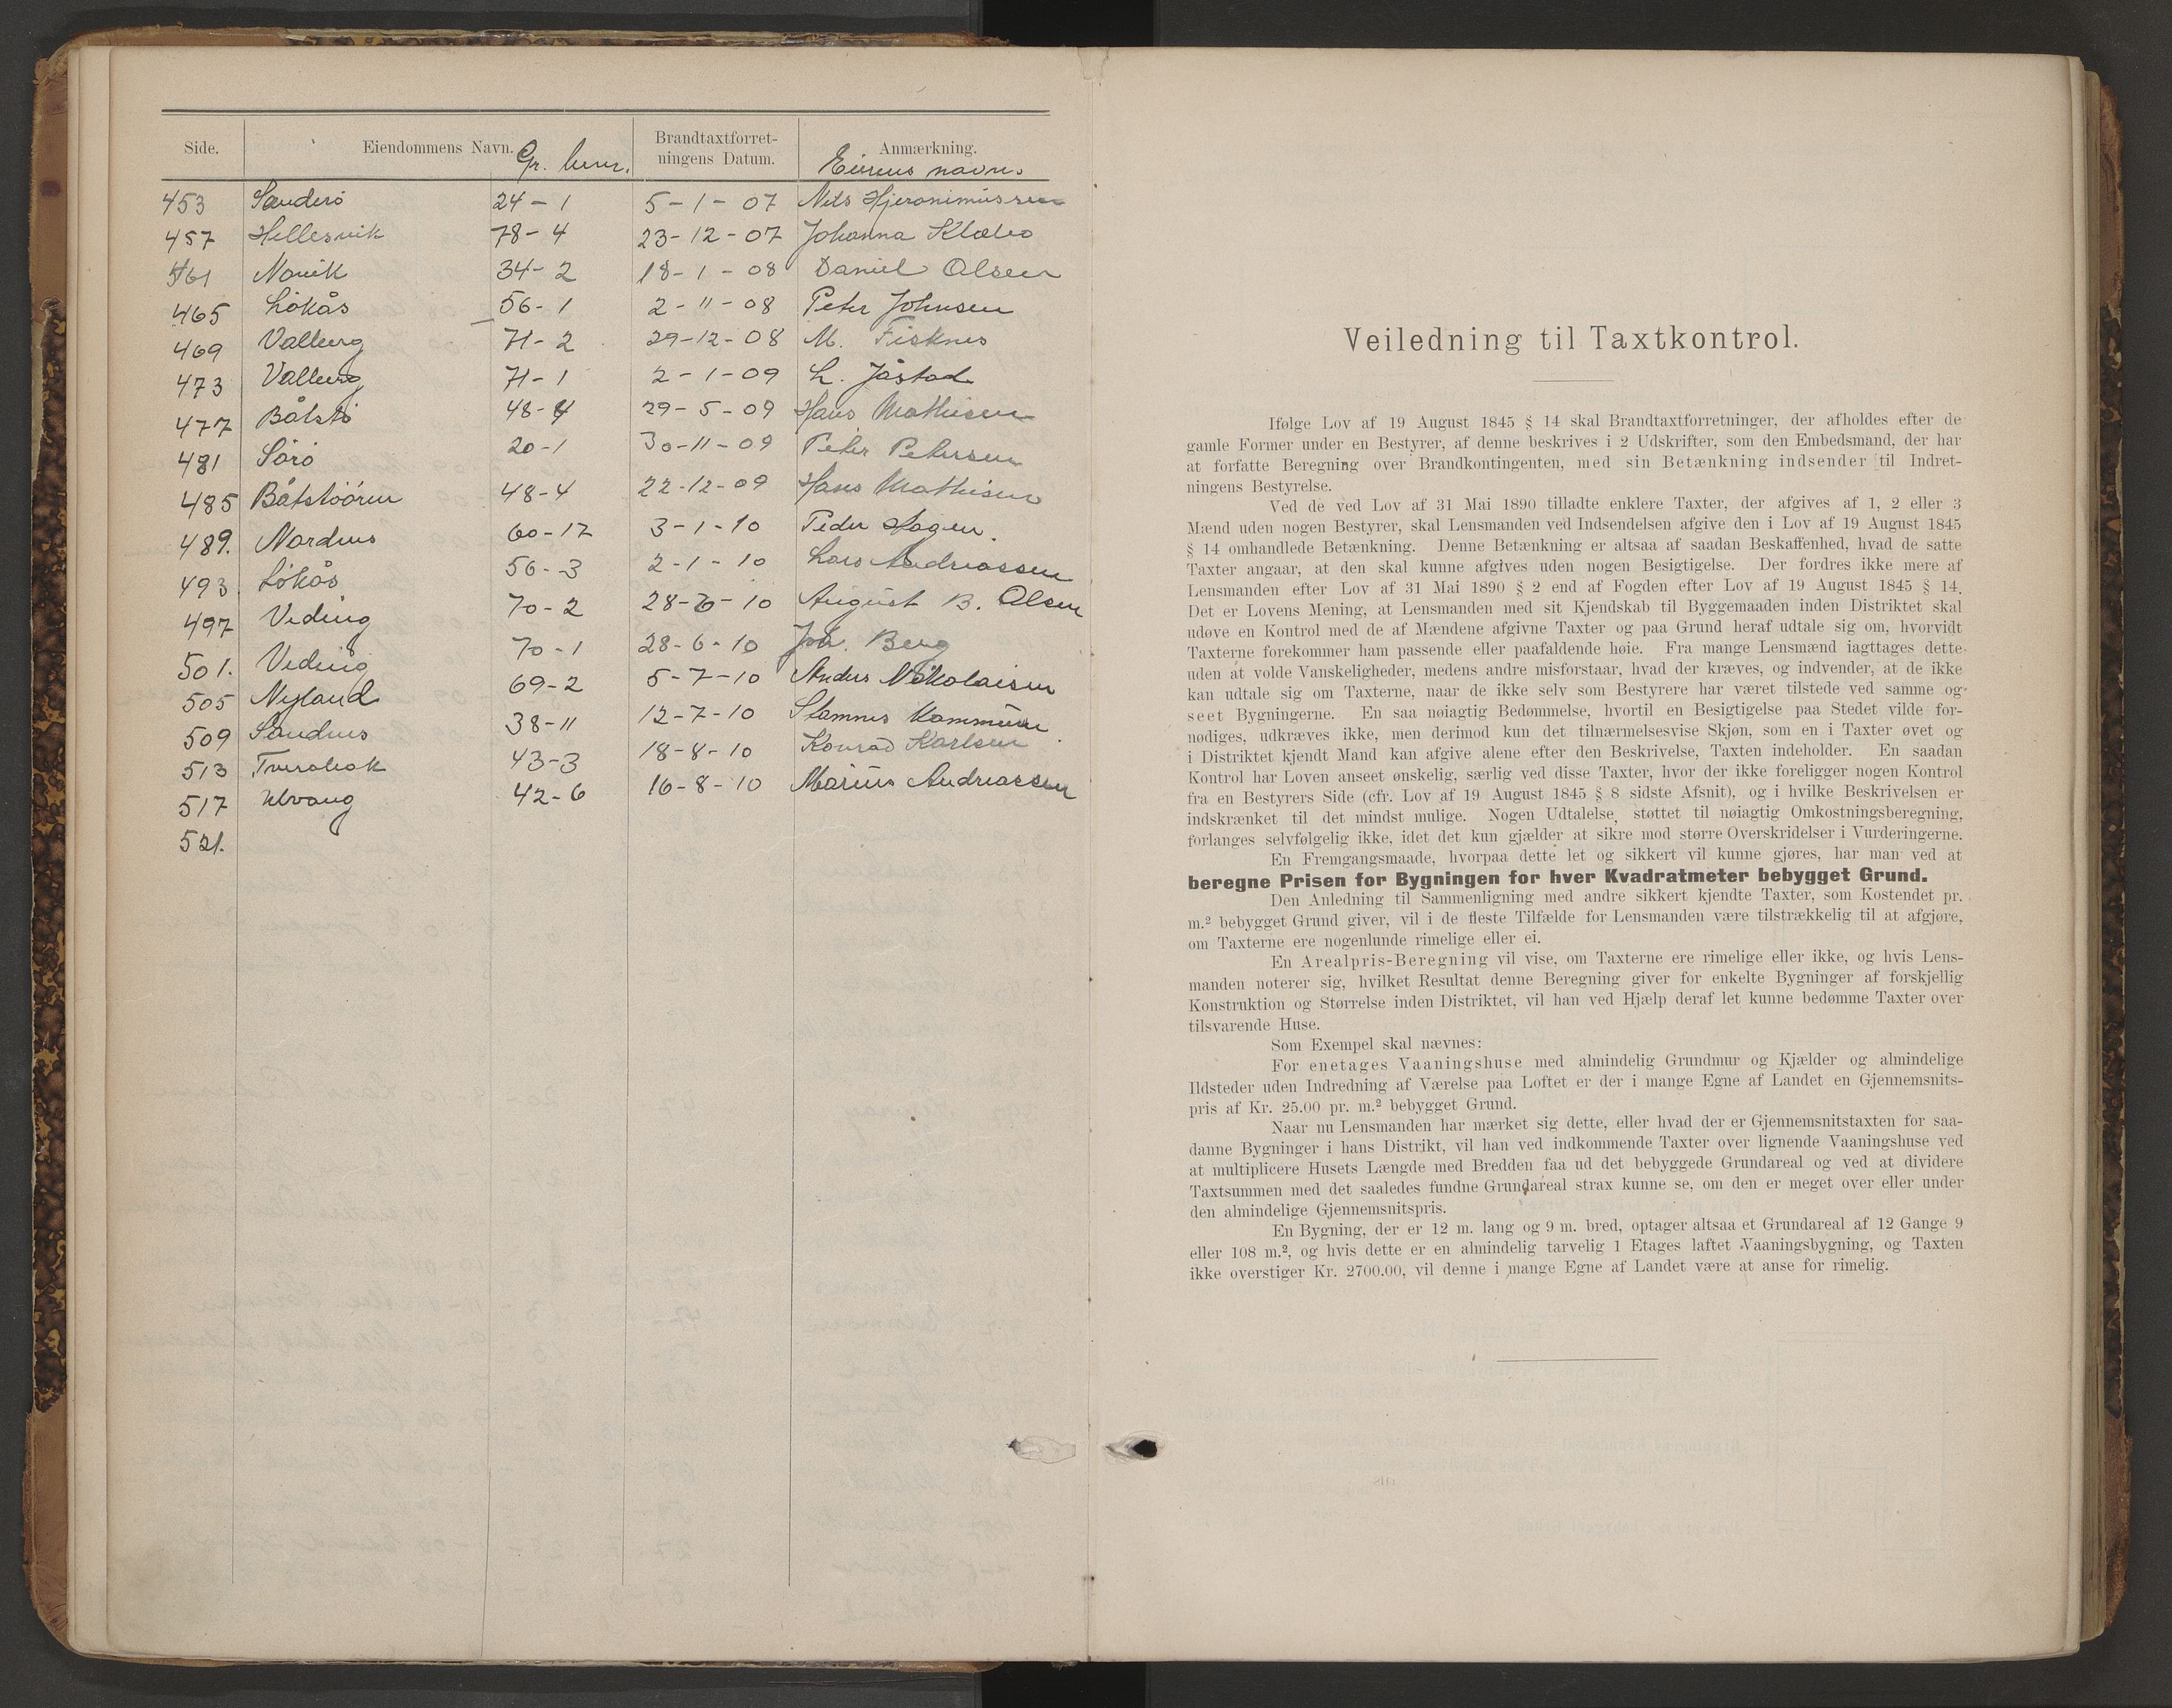 Side. Eiendommens Navn. Gr. bnr. Brandtaxtforret-
ningens Datum. Anmærkning.
Eierens navn.
453 Sanderö 24 - 1 5 - 1 - 07 Nils Hjeronimussen
457 Hellesvik 78 - 4 23-12-07 Johanna Klæbo
461 Norvik 34- 2 18- 1 - 08 Daniel Olsen
465 Lökås 56- 1 2 - 11 - 08 Peter Johnsen
469 Valberg 71- 2 29-12-08 M. Fisknes
473 Valberg 71- 1 2 - 1 - 09 L. Jåstad
477 Båtstö 48-4 29- 5 - 09 Hans Mathisen
481 Sörö 20-1 30-11-09 Peter Petersen
485 Båtstöören 48-4 22-12-09 Hans Mathisen
489. Nordnes 60-17 3 - 1 - 10 Peder Hagen.
493 Lökås 56-3 2 - 1 - 10 Lars Andreassen
497 Veding 70-2 28-6-10 August B. Olsen
501. Veding 70-1 28-6-10 Joh. Berg
505 Nyland 69-2 5-7-10 Anders Nikolaisen
509 Sandnes 38-11 12-7-10 Stamnes Kommune.
513 Tverabak 43-3 18-8-10 Konrad Karlsen
517 Ulvang 42-6 16-8-10 Marius Andreassen
521.
Veiledning til Taxtkontrol.
Ifølge Lov af 19 August 1845 § 14 skal Brandtaxtforretninger, der afholdes efter de
gamle Former under en Bestyrer, af denne beskrives i 2 Udskrifter, som den Embedsmand, der har
at forfatte Beregning over Brandkontingenten, med sin Betænkning indsender til Indret-
ningens Bestyrelse.
Ved de ved Lov af 31 Mai 1890 tilladte enklere Taxter, der afgives af 1, 2 eller 3
Mænd uden nogen Bestyrer, skal Lensmanden ved Indsendelsen afgive den i Lov af 19 August 1845
§ 14 omhandlede Betænkning. Denne Betænkning er altsaa af saadan Beskaffenhed, hvad de satte
Taxter angaar, at den skal kunne afgives uden nogen Besigtigelse. Der fordres ikke mere af
Lensmanden efter Lov af 31 Mai 1890 § 2 end af Fogden efter Lov af 19 August 1845 § 14.
Det er Lovens Mening, at Lensmanden med sit Kjendskab til Byggemaaden inden Distriktet skal
udøve en Kontrol med de af Mændene afgivne Taxter og paa Grund heraf udtale sig om, hvorvidt
Taxterne forekommer ham passende eller paafaldende høie. Fra mange Lensmænd iagttages dette
uden at volde Vanskeligheder, medens andre misforstaar, hvad der kræves, og indvender, at de ikke
kan udtale sig om Taxterne, naar de ikke selv som Bestyrere har været tilstede ved samme og
seet Bygningerne. En saa nøiagtig Bedømmelse, hvortil en Besigtigelse paa Stedet vilde for-
nødiges, udkræves ikke, men derimod kun det tilnærmelsesvise Skjøn, som en i Taxter øvet og
i Distriktet kjendt Mand kan afgive alene efter den Beskrivelse, Taxten indeholder. En saadan
Kontrol har Loven anseet ønskelig, særlig ved disse Taxter, hvor der ikke foreligger nogen Kontrol
fra en Bestyrers Side (cfr. Lov af 19 August 1845 § 8 sidste Afsnit), og i hvilke Beskrivelsen er
indskrænket til det mindst mulige. Nogen Udtalelse, støttet til nøiagtig Omkostningsberegning,
forlanges selvfølgelig ikke, idet det kun gjælder at sikre mod større Overskridelser i Vurderingerne.
En Fremgangsmaade, hvorpaa dette let og sikkert vil kunne gjøres, har man ved at
beregne Prisen for Bygningen for hver Kvadratmeter bebygget Grund.
Den Anledning til Sammenligning med andre sikkert kjendte Taxter, som Kostendet pr.
m.² bebygget Grund giver, vil i de fleste Tilfælde for Lensmanden være tilstrækkelig til at afgjøre,
om Taxterne ere nogenlunde rimelige eller ei.
En Arealpris-Beregning vil vise, om Taxterne ere rimelige eller ikke, og hvis Lens-
manden noterer sig, hvilket Resultat denne Beregning giver for enkelte Bygninger af forskjellig
Konstruktion og Størrelse inden Distriktet, vil han ved Hjælp deraf let kunne bedømme Taxter over
tilsvarende Huse.
Som Exempel skal nævnes:
For enetages Vaaningshuse med almindelig Grundmur og Kjælder og almindelige
Ildsteder uden Indredning af Værelse paa Loftet er der i mange Egne af Landet en Gjennemsnits-
pris af Kr. 25.00 pr. m.² bebygget Grund.
Naar nu Lensmanden har mærket sig dette, eller hvad der er Gjennemsnitstaxten for saa-
danne Bygninger i hans Distrikt, vil han ved indkommende Taxter over lignende Vaaningshuse ved
at multiplicere Husets Længde med Bredden faa ud det bebyggede Grundareal og ved at dividere
Taxtsummen med det saaledes fundne Grundareal strax kunne se, om den er meget over eller under
den almindelige Gjennemsnitspris.
En Bygning, der er 12 m. lang og 9 m. bred, optager altsaa et Grundareal af 12 Gange 9
eller 108 m.², og hvis dette er en almindelig tarvelig 1 Etages laftet Vaaningsbygning, og Taxten
ikke overstiger Kr. 2700.00, vil denne i mange Egne af Landet være at anse for rimelig.